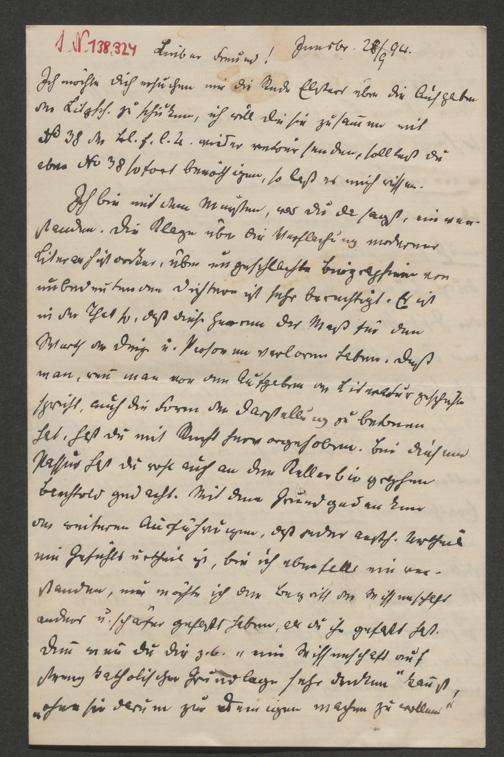 I. N. 138.324
Lieber Freund! Innsbr. 28/9 94.
Ich möchte dich ersuchen mir die Rede Elsters über die Aufgaben
der Litgesch. zu schicken, ich will dir sie zusammen mit
No 38 des wieder retour senden, solltest du
aber No 38 sofort benöthigen, so laß es mich wissen.
Ich bin mit dem Meisten, was du da sagst, einver-
standen. Die Klage über die Verflachung moderner
Literarhistoriker, über ungeschlachte Biographien von
unbedeutenden Dichtern ist sehr berechtigt. Es ist
in der That so, daß diese Herren das Maß für den
Werth der Dinge u. Personen verloren haben. Daß
man, wenn man von den Aufgaben der Literaturgeschichte
spricht, auch die Form der Darstellung zu betonen
hat, hast du mit Recht hervorgehoben. Bei diesem
Passus hast du wohl auch an den Kellerbiographen
Baechtold gedacht. Mit dem Grundgedanken
der weiteren Ausführungen, daß jedes aesth. Urtheil
ein Gefühlsurtheil ist, bin ich ebenfalls einver-
standen, nur möchte ich den Begriff der Wissenschaft
anders u. schärfer gefaßt haben, als du ihn gefaßt hast.
Denn wenn du dir z. B. „eine Wissenschaft auf
streng katholischer Grundlage sehr denken" kannst,
„ohne sie darum zur Deinigen machen zu wollen"